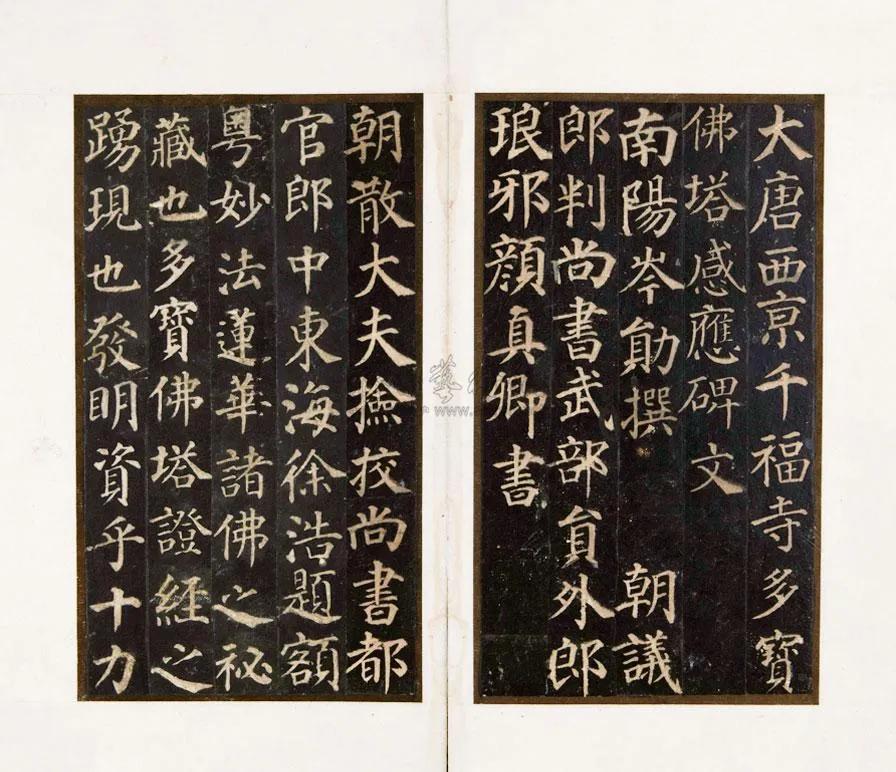 大唐西京千福寺多寶
佛塔感應碑文
南陽岑勛撰 朝議
郎判尚書武部員外郎
琅邪顏真卿書
朝散大夫撿挍尚書都
官郎中東海徐浩題額
粵妙法蓮華諸佛之祕
藏也多寶佛塔證經之
踴現也發明資乎十力